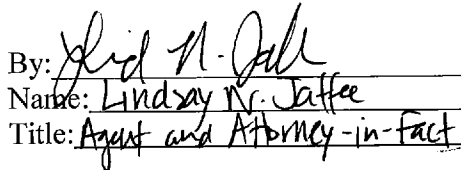 By:
Name: Lindsay N. Jaffee
Title: Agent and Attorney-in-Fact